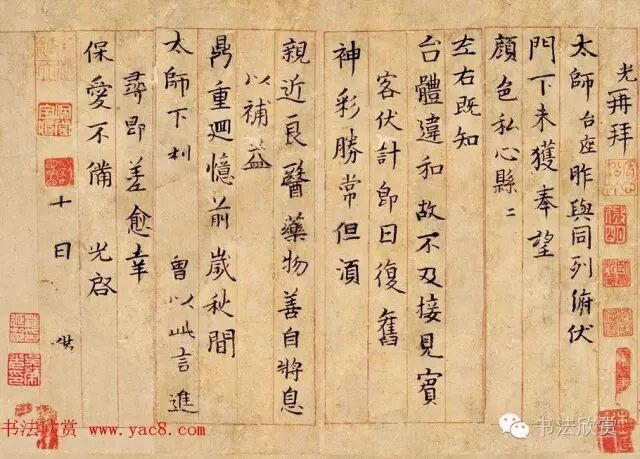 光再拜
太師台座昨與同列俯伏
門下未獲奉望
顏色私心縣〻
左右既知
台體違和故不及接見賓
客伏計即日復舊
神彩勝常但須
親近良醫藥物善自將息
以補益
鼎重迴憶前歲秋間
太師下利 曾以此言進
尋即差愈幸
保愛不備 光啓
十日
书法欣赏 www.yac8.com
书法欣赏